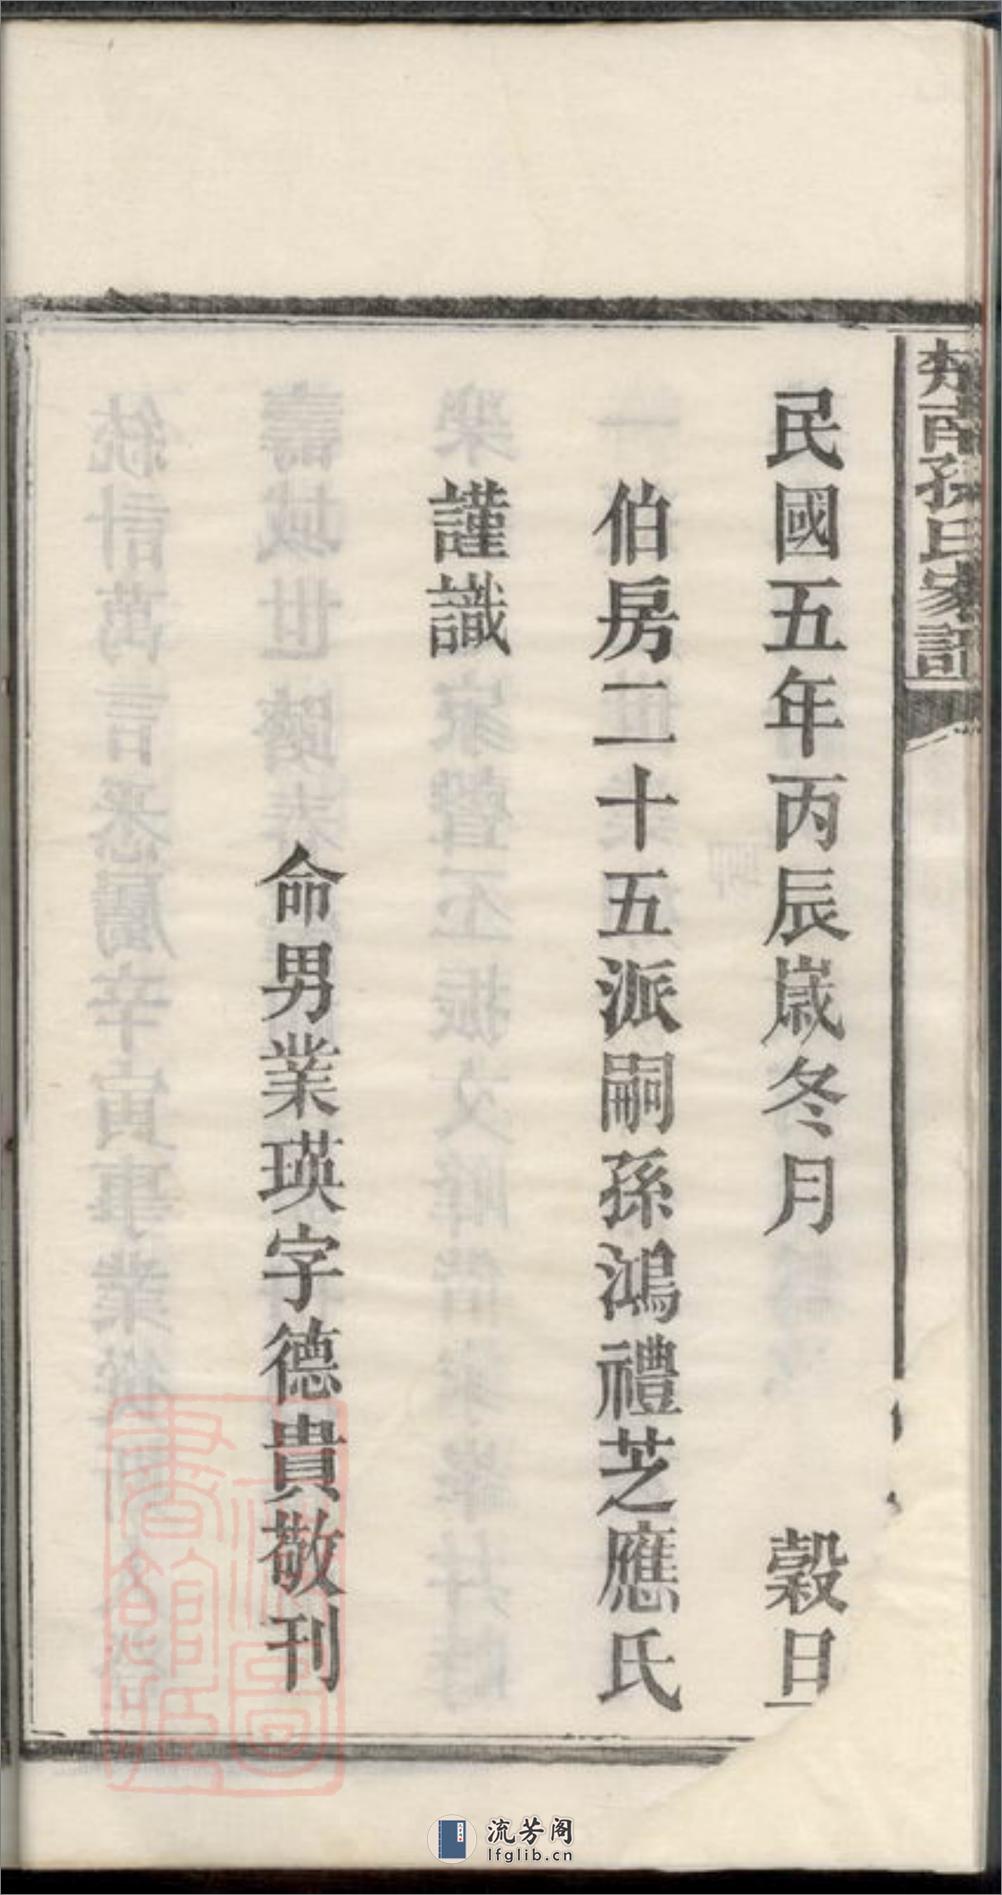 楚南孫氏家記
民國五年丙辰歲冬月 穀旦
伯房二十五派嗣孫鴻禮芝應氏
謹識
命男業瑛字德貴敬刊
流芳阁
lfglib.cn